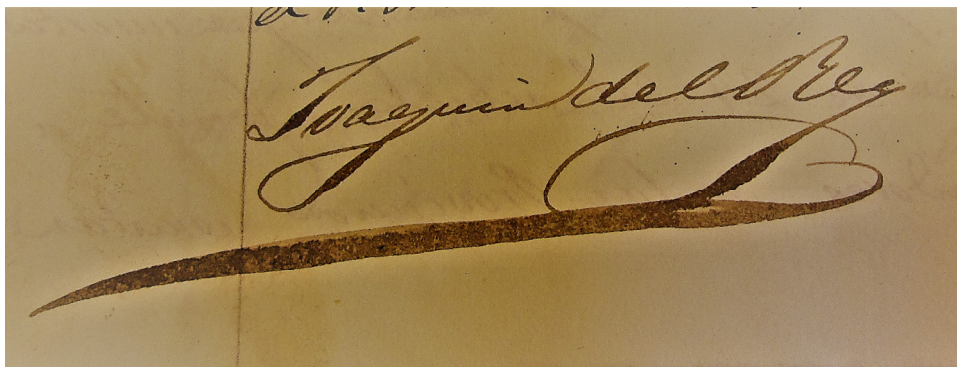 Joaquin del Rey